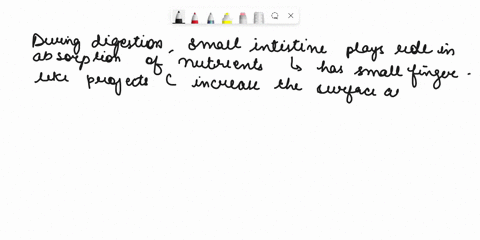 During digestion, small intistine plays role in
absorption of nutrients ↳ has small finger-
like projects C increase the surface a